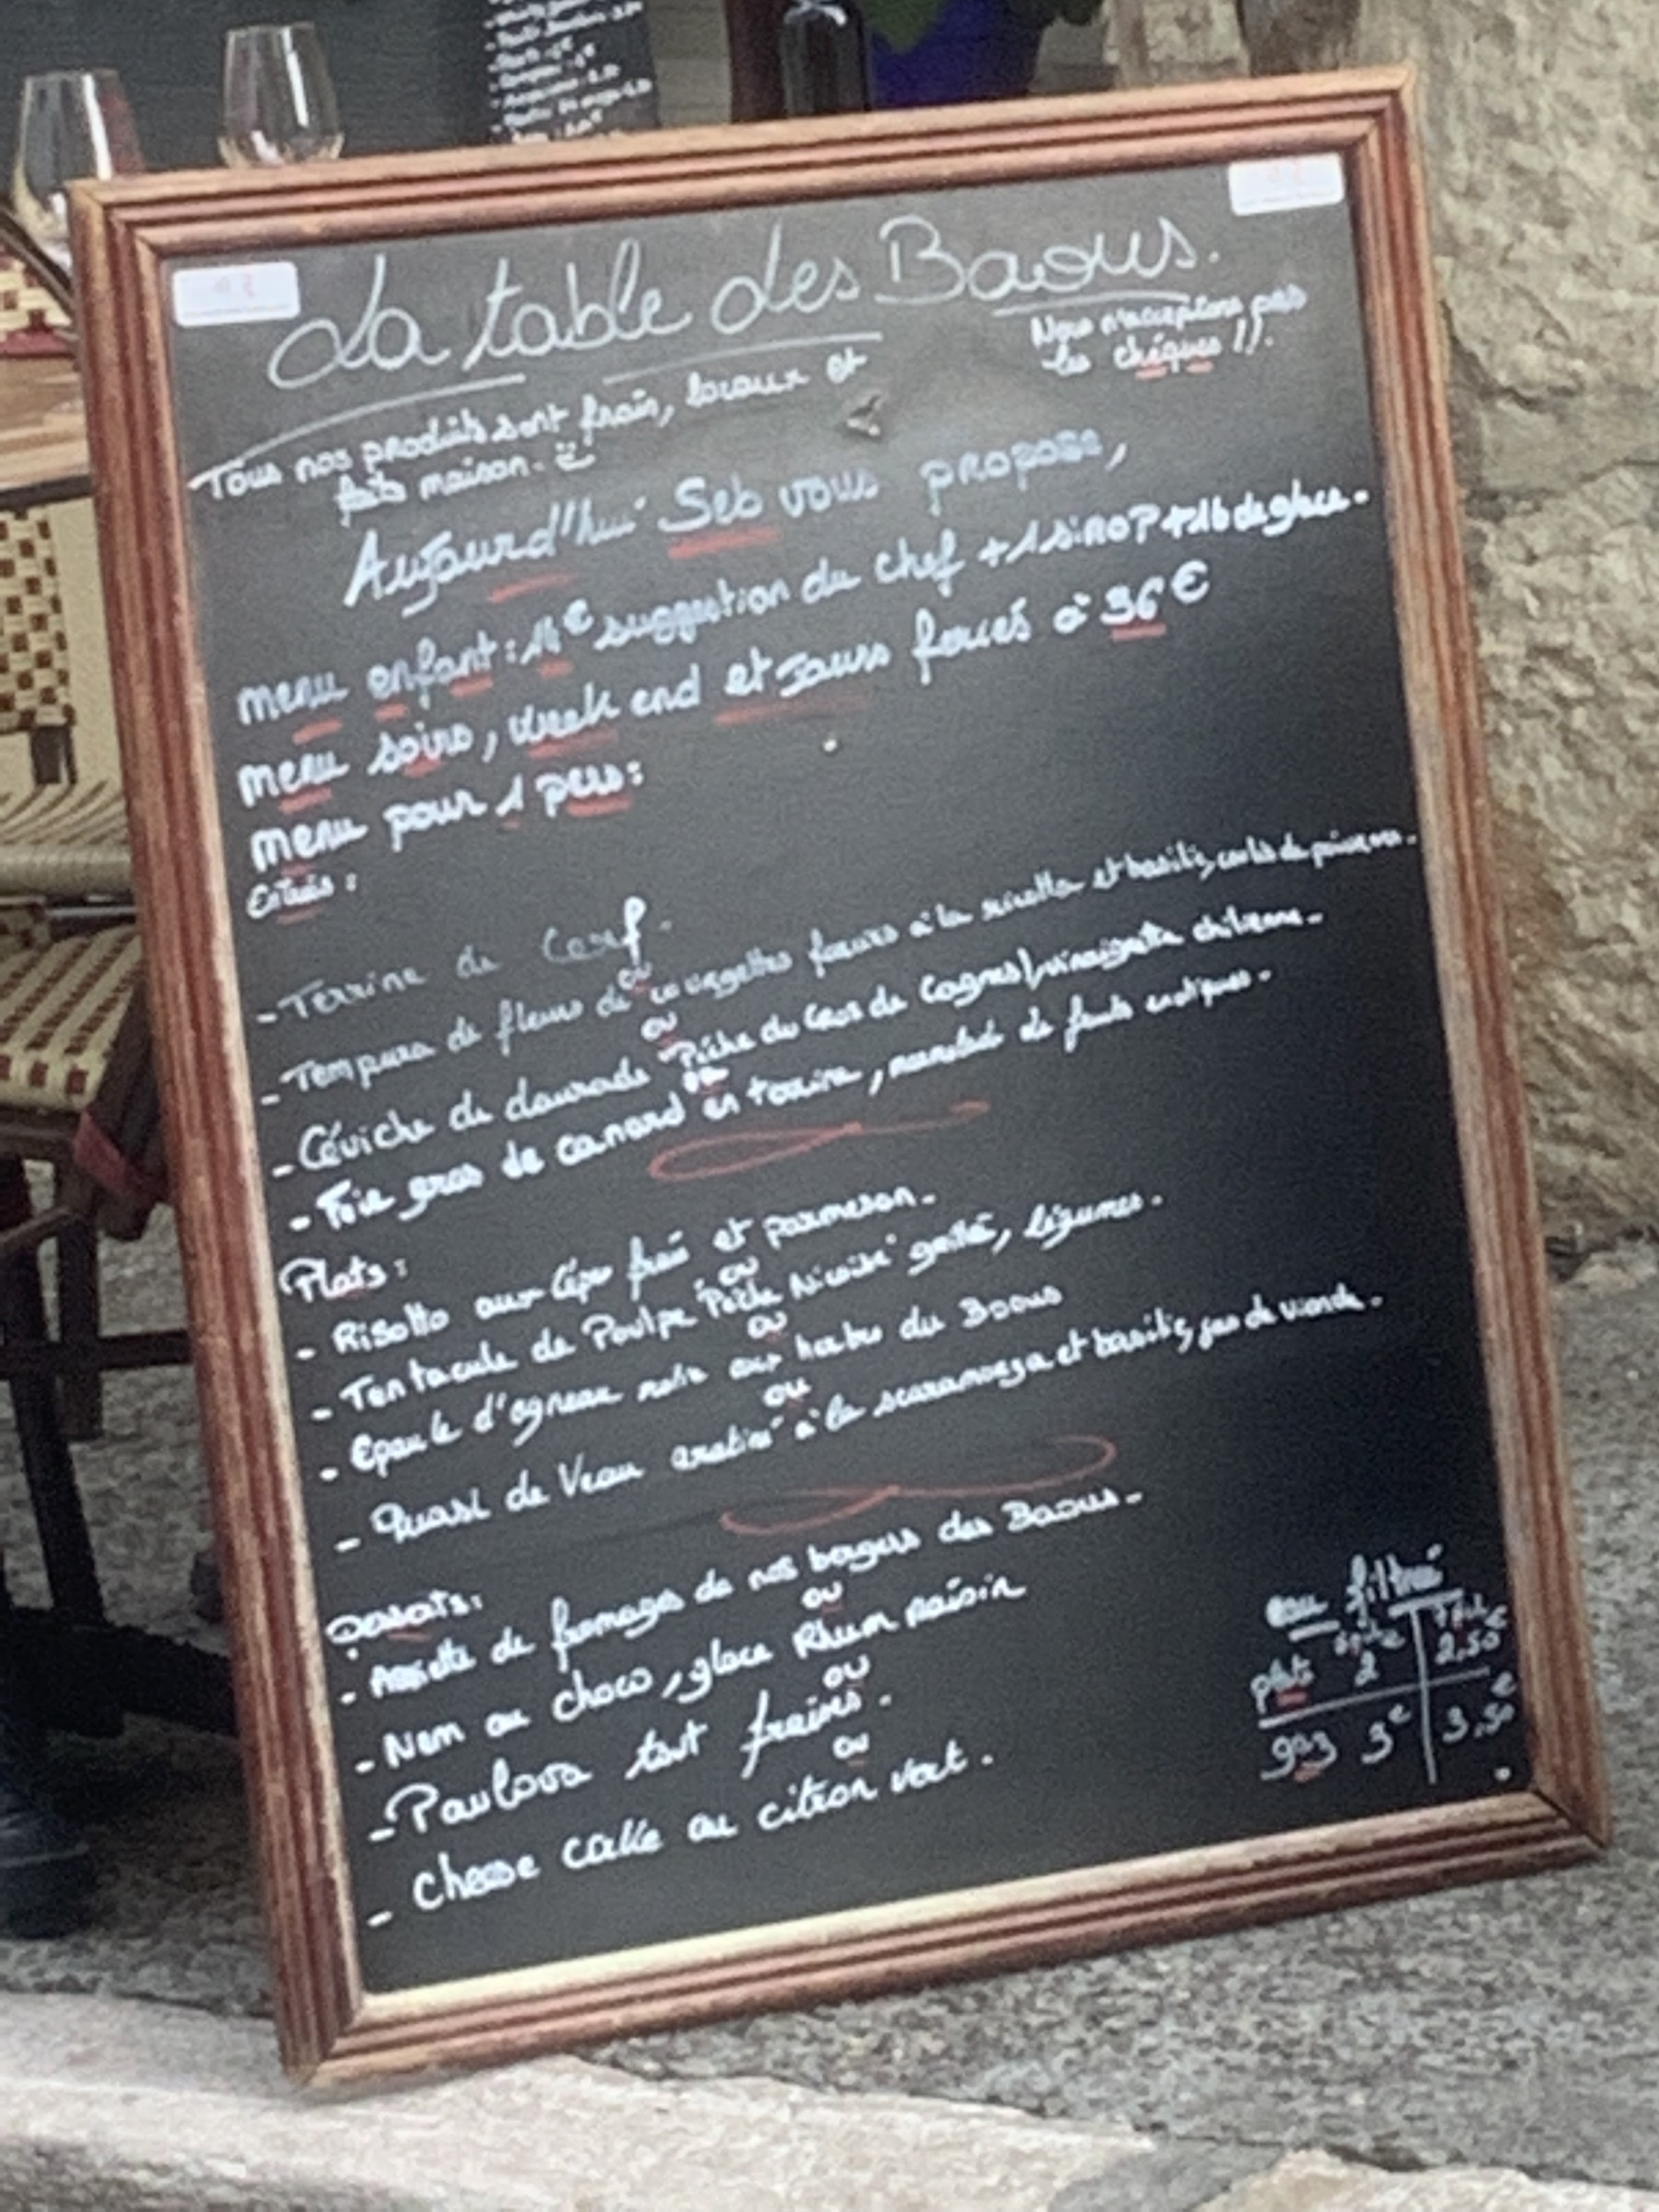 La table des Baous.
Nous n'acceptons pas
les chéques !!.
Tous nos produits sont frais, locaux et
faits maison.
Aujourd'hui Seb vous propose,
menu enfant: € suggestion du chef + 1 sirop + 1b de glace.
menu soirs, week end et Jours feriés à 36€
menu pour 1 pers:
Entrées:
- Terrine de Cerf.
ou
- Tempura de fleurs de courgettes farcies à la ricotta et basilic, coulis de poivrons.
ou
- Céviche de daurade "Pêche du Cros de Cagnes", vinaigrette chilienne.
ou
- Foie gras de canard en terrine, de fruits exotiques.
Plats:
- Risotto aux cèpes frais et parmesan.
ou
- Tentacule de Poulpe "Pêche Niçoise" grillé, légumes.
ou
- Epaule d'agneau aux herbes du Baous
ou
- Quasi de Veau gratiné à la scaramorza et basilic, jus de viande.
Desserts:
- Assiette de fromages de nos bergers des Baous.
ou
- Nem au choco, glace Rhum raisin
ou
- Pavlova tout fraises.
ou
- Cheese cake au citron vert.
eau filtrée
plate 2€ 2,50€
gaz 3€ 3,50€